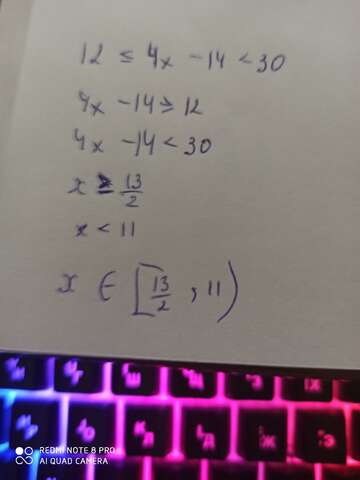 12 ≤ 4x - 14 < 30
4x - 14 ≥ 12
4x - 14 < 30
x ≥ 13/2
x < 11
x ∈ [13/2, 11)
REDMI NOTE 8 PRO
AI QUAD CAMERA